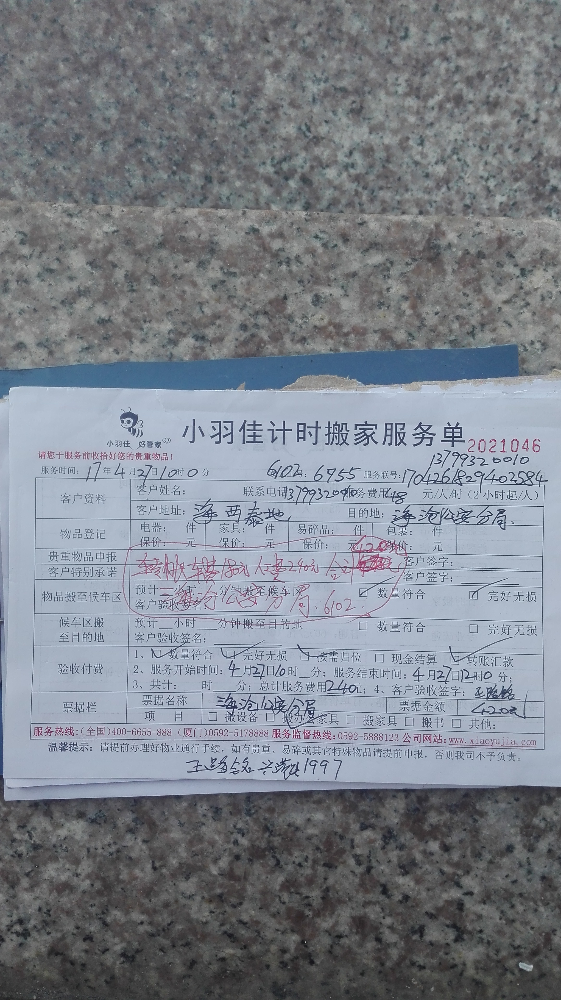 小羽佳 好管家
小羽佳计时搬家服务单
2021046
请您于服务前收拾好您的贵重物品!
13799320010
服务时间:17年4月27日10时0分 6102.6955 服务联号:1701261829402584
客户资料 客户姓名: 联系电话13799320010 服务费用48 元/人/时(2小时起/人)
客户地址:海西泰地 目的地:海沧公安分局
物品登记 电器: 件 家具: 件 易碎品: 件 包裹: 件
保价: 元 保价: 元 保价: 元
贵重物品申报 客户签字:
客户特别承诺 客户签字:
车 180元 人工240元 合计
物品搬至候车区 预计 小时 分钟搬至候车区 □ 数量符合 □ 完好无损
客户验收签名:
公安分局.6102
候车区搬至目的地 预计 小时 分钟搬至目的地 □ 数量符合 □ 完好无损
客户验收签名:
验收付费 1、数量符合 完好无损 按需归位 □ 现金结算 转账汇款
2、服务开始时间:4月27日10时 分;服务结束时间:4月27日12时10分;
3、共计: 时 分;总计服务费用240元;4、客户验收签字:
票据栏 票据名称 海沧公安分局 票据金额 420元
项 目 □ 搬设备 □ 搬办公家具 □ 搬家具 □ 搬书 □ 其他:
服务热线:(全国)400-6655 888 (厦门)0592-5178888 服务监督热线:0592-5888123 公司网站:www.xiaoyujia.com
温馨提示:请提前办理好物业通行手续,如有贵重、易碎或其它特殊物品请提前申报,否则我司不予负责。
1997